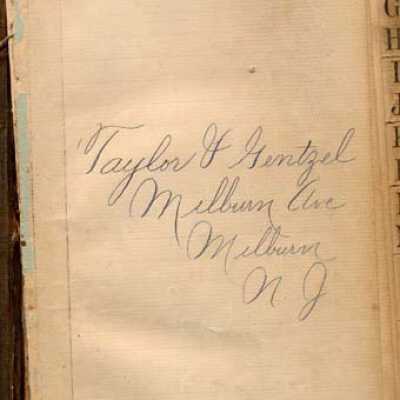 Taylor & Gentzel
Milburn Ave
Milburn
N. J
G
H
I
J